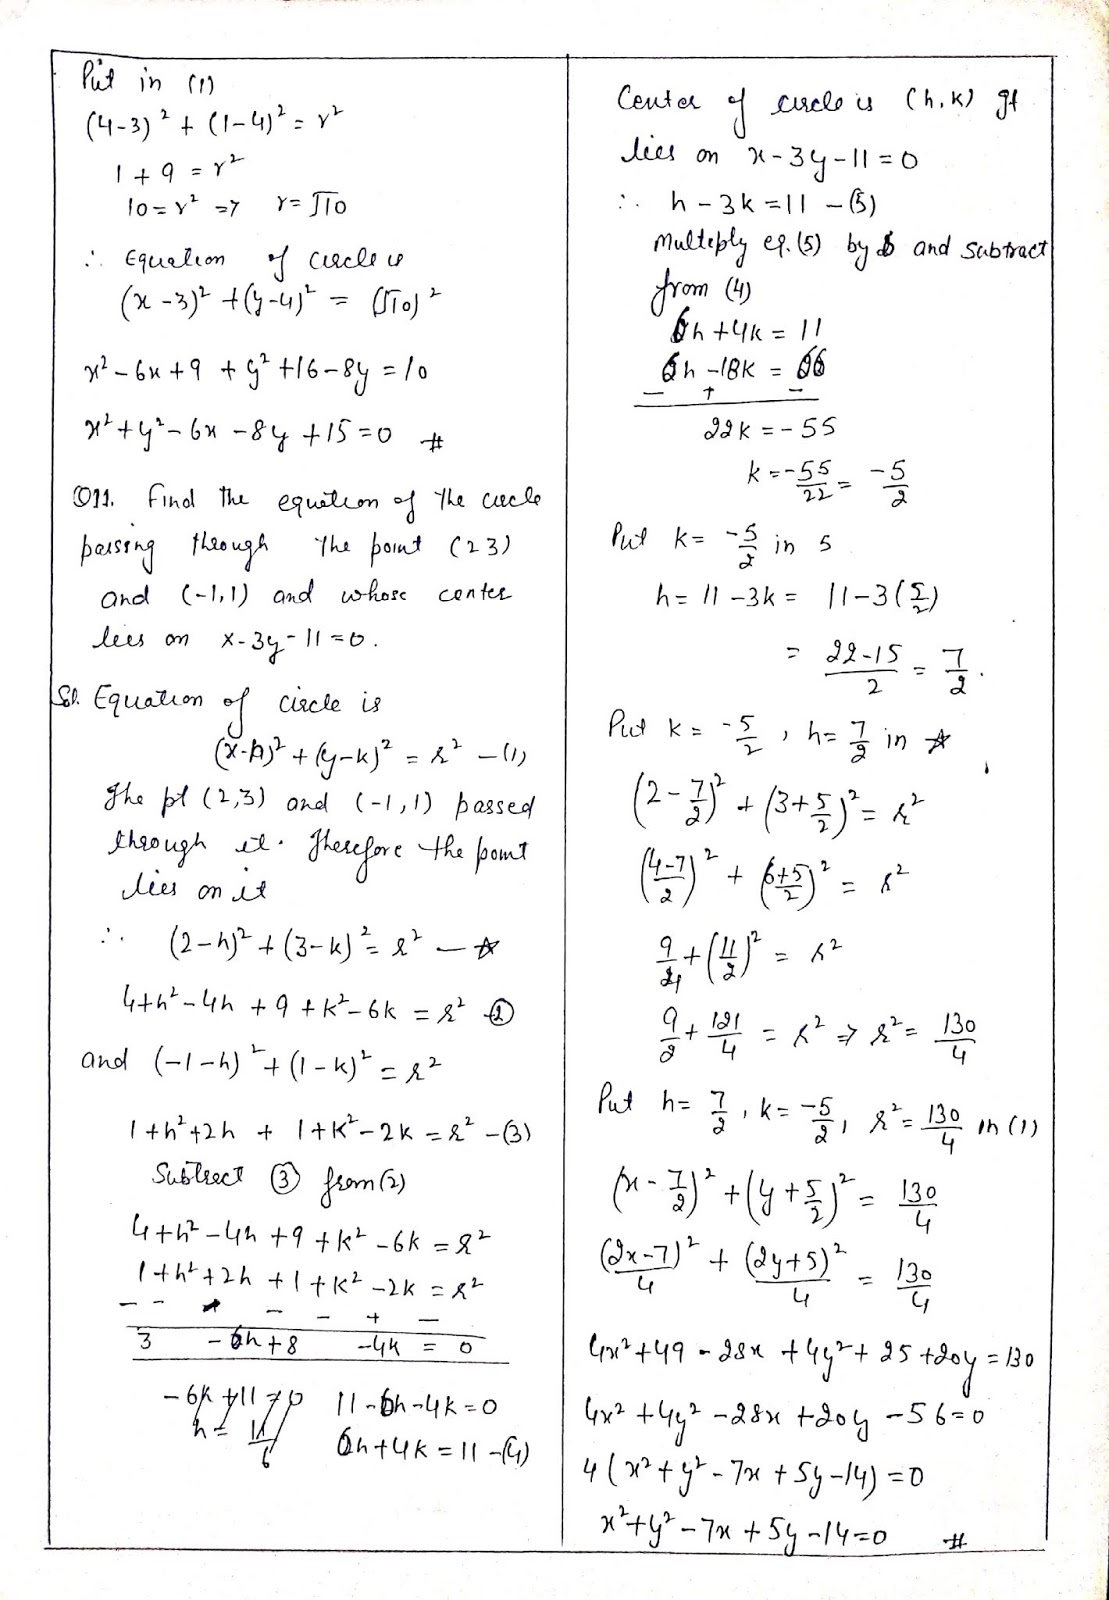 Put in (1)
(4-3)² + (1-4)² = r²
1 + 9 = r²
10 = r² => r = √10
∴ Equation of circle is
(x-3)² + (y-4)² = (√10)²
x² - 6x + 9 + y² + 16 - 8y = 10
x² + y² - 6x - 8y + 15 = 0 #
Q11. Find the equation of the circle
passing through the point (2 3)
and (-1,1) and whose center
lies on x-3y-11=0.
Sol. Equation of circle is
(x-h)² + (y-k)² = r² - (1)
The pt (2,3) and (-1,1) passed
through it. Therefore the point
lies on it
∴ (2-h)² + (3-k)² = r² - ☆
4+h²-4h + 9 + k²-6k = r² ②
and (-1-h)² + (1-k)² = r²
1+h²+2h + 1+k²-2k = r² - (3)
Subtract ③ from (2)
4+h²-4h+9+k²-6k = r²
1+h²+2h+1+k²-2k = r²
- - - - + -
3 -6h+8 -4k = 0
11-6h-4k=0
6h+4k = 11 - (4)
Center of circle is (h,k) It
lies on x-3y-11=0
∴ h-3k=11 - (5)
Multiply eq.(5) by 6 and subtract
from (4)
6h+4k = 11
6h-18k = 66
- + -
22k = -55
k = -55/22 = -5/2
Put k = -5/2 in 5
h = 11-3k = 11-3(5/2)
= 22-15/2 = 7/2.
Put k = -5/2, h = 7/2 in ☆
(2-7/2)² + (3+5/2)² = r²
(4-7/2)² + (6+5/2)² = r²
9/4 + (11/2)² = r²
9/2 + 121/4 = r² => r² = 130/4
Put h = 7/2, k = -5/2, r² = 130/4 in (1)
(x-7/2)² + (y+5/2)² = 130/4
(2x-7)²/4 + (2y+5)²/4 = 130/4
4x²+49-28x+4y²+25+20y=130
4x²+4y²-28x+20y-56=0
4(x²+y²-7x+5y-14)=0
x²+y²-7x+5y-14=0 #